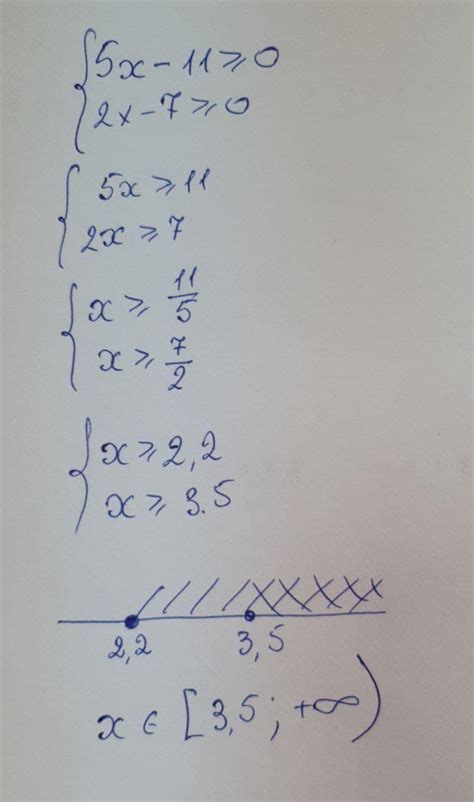 {5x - 11 ⩾ 0
{2x - 7 ⩾ 0
{5x ⩾ 11
{2x ⩾ 7
{x ⩾ 11/5
{x ⩾ 7/2
{x ⩾ 2,2
{x ⩾ 3.5
2,2 3,5
x ∈ [3,5; +∞)